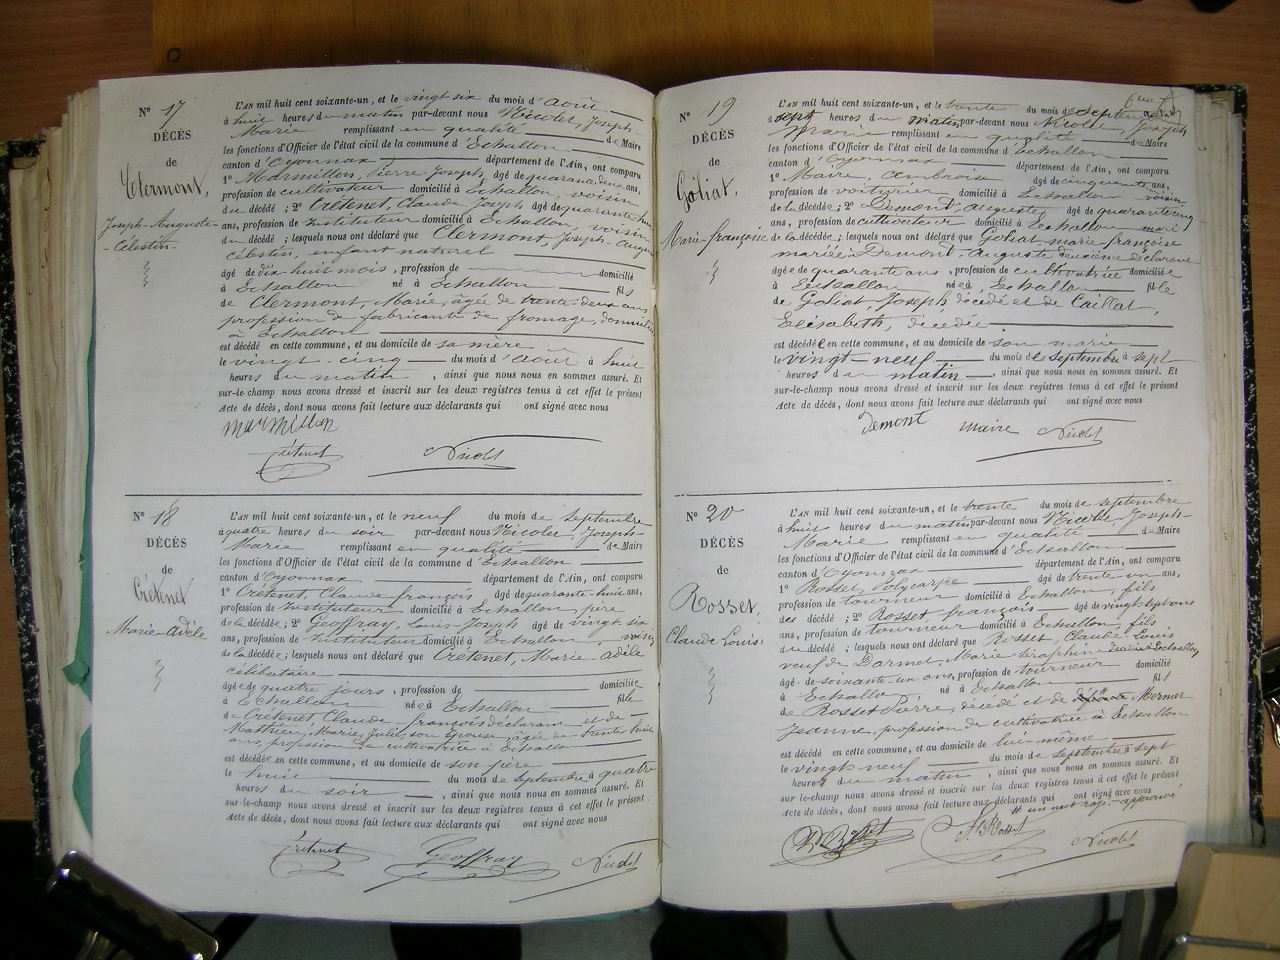 N° 17
DÉCÈS
de
Clermont,
Joseph-Auguste-
Célestin
L'AN mil huit cent soixante-un, et le vingt six du mois d'août
à huit heures du matin par-devant nous Nicolet, Joseph-
Marie remplissant en qualité de Maire
les fonctions d'Officier de l'état civil de la commune d'Echallon
canton d'Oyonnax département de l'Ain, ont comparu
1° Marmillon, Pierre Joseph, âgé de quarante deux ans,
profession de cultivateur domicilié à Echallon, voisin
du décédé ; 2° Crétenet, Claude, Joseph âgé de quarante huit
ans, profession de Instituteur domicilié à Echallon, voisin
du décédé ; lesquels nous ont déclaré que Clermont Joseph-Auguste
Célestin, enfant naturel
âgé de dix huit mois, profession de domicilié
à Echallon né à Echallon fils
de Clermont, Marie, âgée de trente-deux ans
profession de fabricante de fromage, domiciliée
à Echallon
est décédé en cette commune, et au domicile de sa mère
le vingt-cinq du mois d'août à huit
heures du matin, ainsi que nous nous en sommes assuré. Et
sur-le-champ nous avons dressé et inscrit sur les deux registres tenus à cet effet le présent
Acte de décès, dont nous avons fait lecture aux déclarants qui ont signé avec nous
Marmillon
Crétenet
N° 18
DÉCÈS
de
Crétenet
Marie-Adèle
L'AN mil huit cent soixante-un, et le neuf du mois de septembre
à quatre heures du soir par-devant nous Nicolet, Joseph-
Marie remplissant en qualité de Maire
les fonctions d'Officier de l'état civil de la commune d'Echallon
canton d'Oyonnax département de l'Ain, ont comparu
1° Crétenet, Claude françois âgé de quarante huit ans,
profession de Instituteur domicilié à Echallon, père
de la décédée ; 2° Geoffray, Louis-Joseph âgé de vingt six
ans, profession de Instituteur domicilié à Echallon, voisin
de la décédée ; lesquels nous ont déclaré que Crétenet, Marie-adèle
célibataire
âgée de quatre jours, profession de domiciliée
à Echallon née à Echallon fille
de Crétenet, Claude-françois déclarant et de
Mathieu, Marie, Julie, son épouse, âgée de trente huit
ans, profession de cultivatrice à Echallon
est décédée en cette commune, et au domicile de son père
le huit du mois de septembre à quatre
heures du soir, ainsi que nous nous en sommes assuré. Et
sur-le-champ nous avons dressé et inscrit sur les deux registres tenus à cet effet le présent
Acte de décès, dont nous avons fait lecture aux déclarants qui ont signé avec nous
Crétenet Geoffray
N° 19
DÉCÈS
de
Goliat,
Marie-françoise
L'AN mil huit cent soixante-un, et le trente du mois de septembre
à sept heures du matin par-devant nous Nicolet, Joseph
Marie remplissant en qualité de Maire
les fonctions d'Officier de l'état civil de la commune d'Echallon
canton d'Oyonnax département de l'Ain, ont comparu
1° Maire, Ambroise âgé de cinquante ans,
profession de voiturier domicilié à Echallon, voisin
de la décédée ; 2° Demont, auguste, âgé de quarante cinq
ans, profession de cultivateur domicilié à Echallon mari
de la décédée ; lesquels nous ont déclaré que Goliat marie françoise
mariée à Demont, auguste deuxième déclarant
âgée de quarante ans, profession de cultivatrice domiciliée
à Echallon née à Echallon fille
de Goliat, Joseph décédé et de Caillat,
Elisabeth, décédée
est décédée en cette commune, et au domicile de son marie
le vingt-neuf du mois de septembre à sept
heures du matin, ainsi que nous nous en sommes assuré. Et
sur-le-champ nous avons dressé et inscrit sur les deux registres tenus à cet effet le présent
Acte de décès, dont nous avons fait lecture aux déclarants qui ont signé avec nous
Demont Maire
N° 20
DÉCÈS
de
Rosset,
Claude Louis
L'AN mil huit cent soixante-un, et le trente du mois de septembre
à huit heures du matin par-devant nous Nicolet, Joseph-
Marie remplissant en qualité de Maire
les fonctions d'Officier de l'état civil de la commune d'Echallon
canton d'Oyonnax département de l'Ain, ont comparu
1° Rosset, Polycarpe âgé de trente un ans,
profession de tourneur domicilié à Echallon, fils
du décédé ; 2° Rosset françois âgé de vingt sept ans
ans, profession de tourneur domicilié à Echallon, fils
du décédé ; lesquels nous ont déclaré que Rosset, Claude Louis
veuf de Darmet, Marie Séraphine
âgé de soixante-un ans, profession de tourneur domicilié
à Echallon, né à Echallon fils
de Rosset Pierre, décédé et de Mermet
Jeanne, profession de cultivatrice à Echallon
est décédé en cette commune, et au domicile de lui-même
le vingt neuf du mois de septembre à sept
heures du matin, ainsi que nous nous en sommes assuré. Et
sur-le-champ nous avons dressé et inscrit sur les deux registres tenus à cet effet le présent
Acte de décès, dont nous avons fait lecture aux déclarants qui ont signé avec nous
un mot rayé approuvé